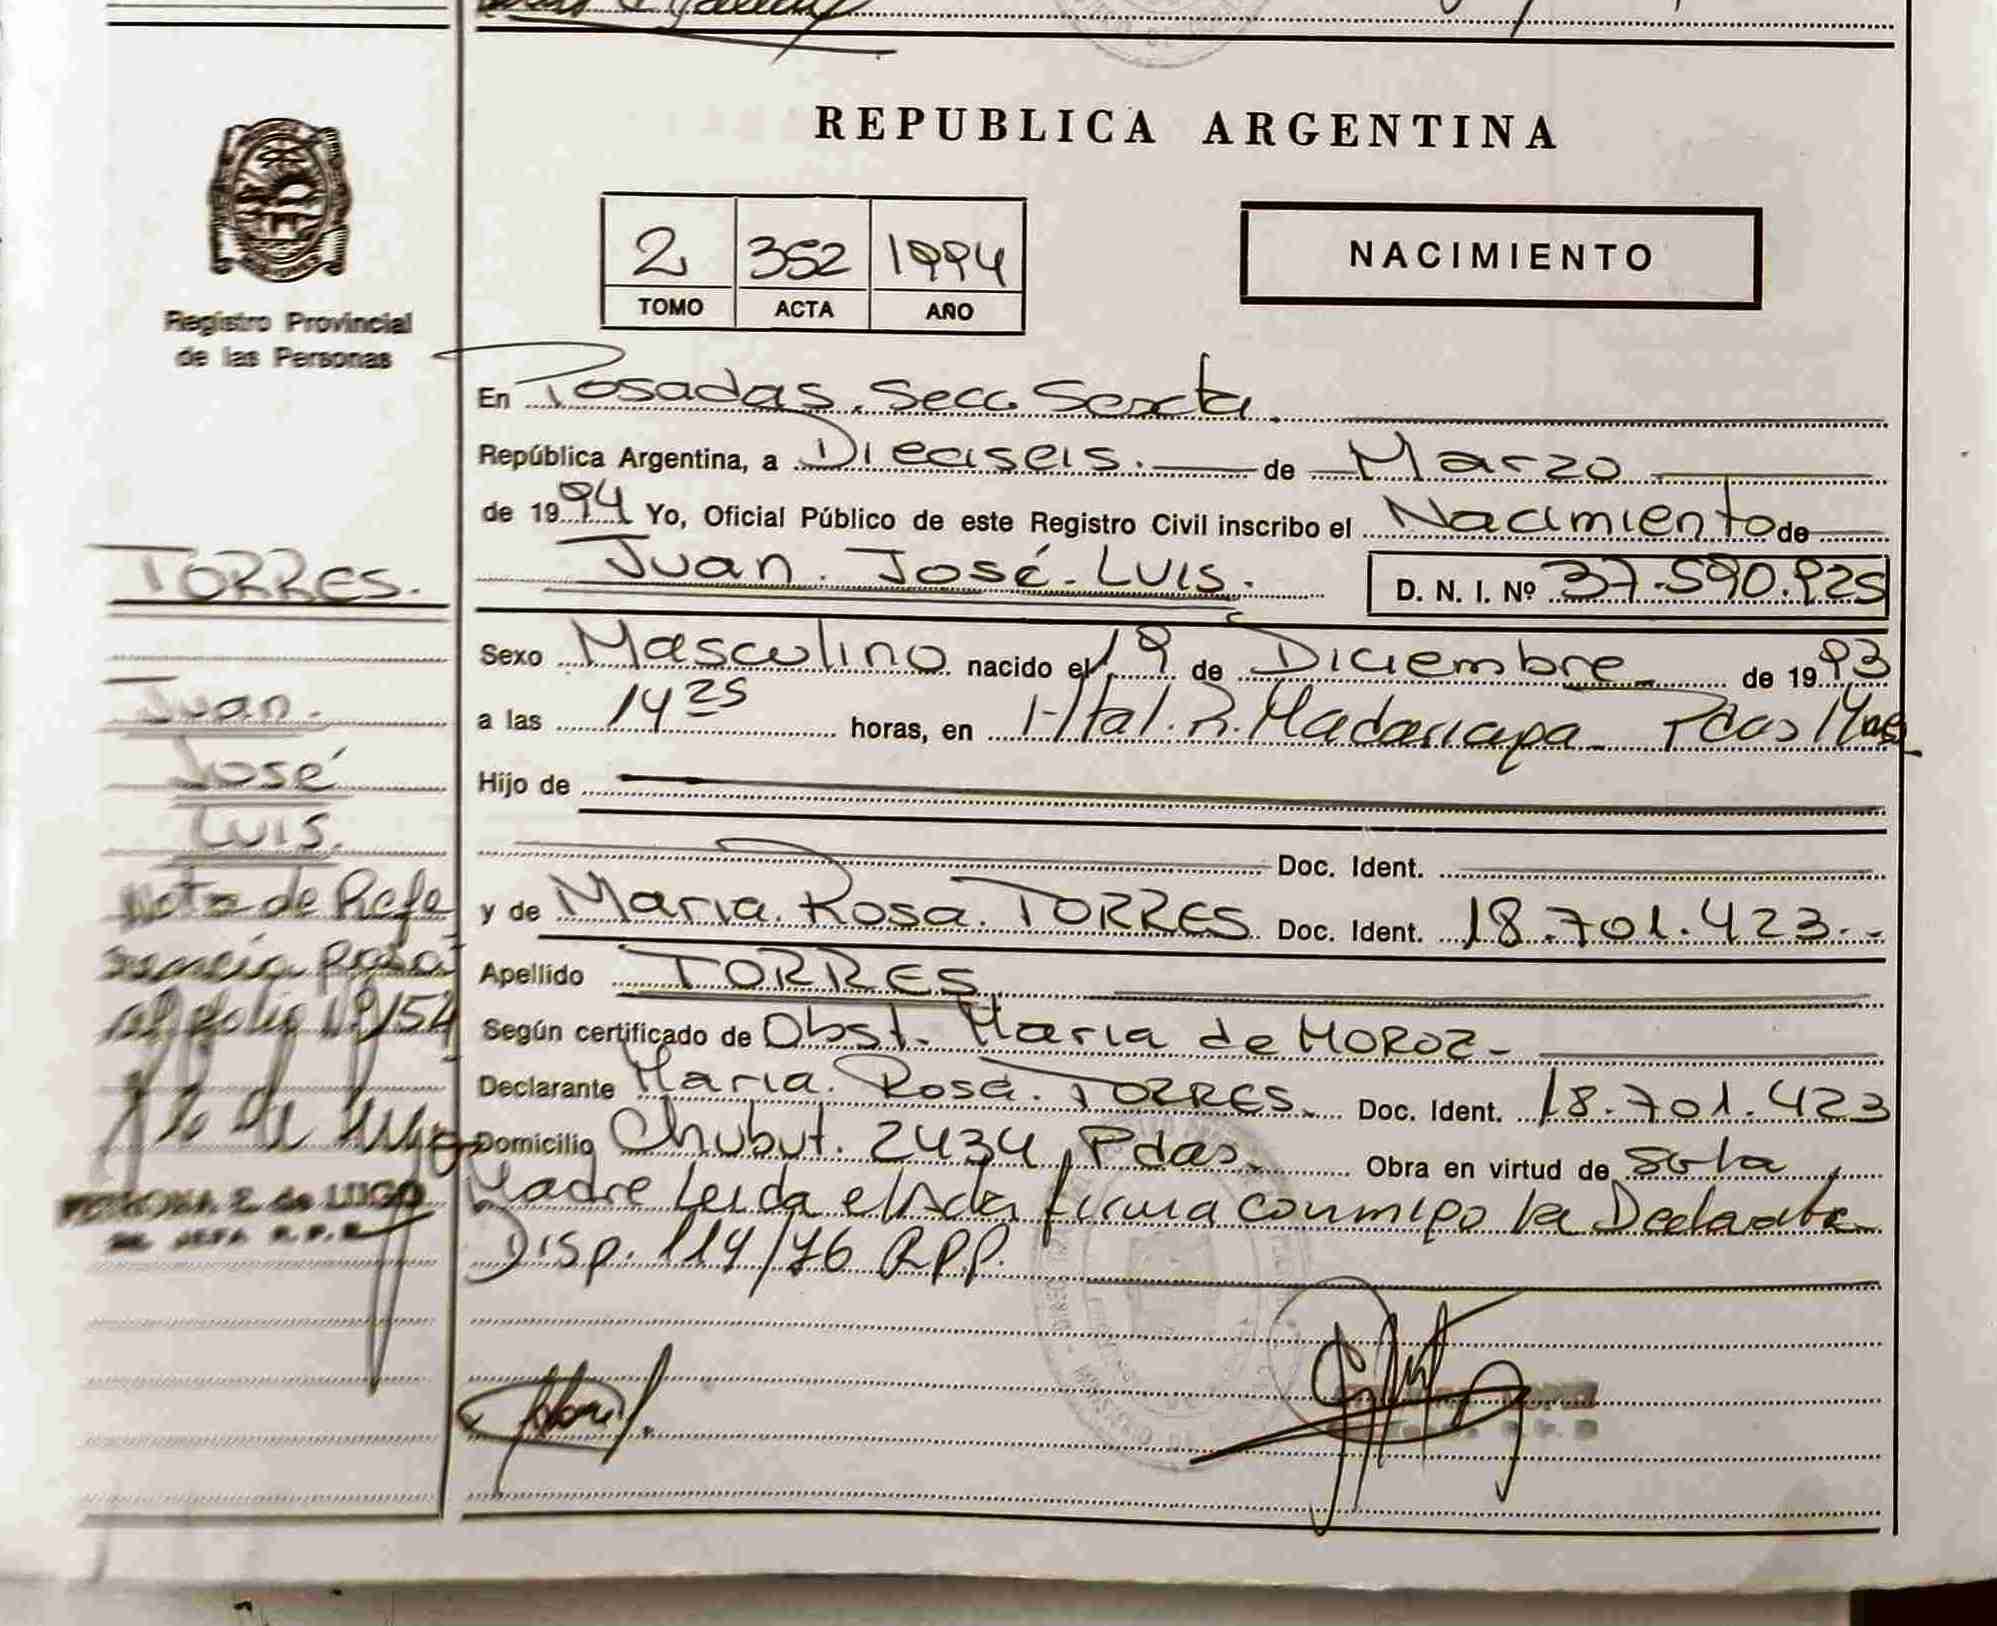 REPUBLICA ARGENTINA
2 352 1994
TOMO ACTA AÑO
NACIMIENTO
Registro Provincial
de las Personas
En Posadas. Secc. Sexta.
República Argentina, a Dieciseis. de Marzo
de 1994 Yo, Oficial Público de este Registro Civil inscribo el Nacimiento de
Juan. José. Luis. D. N. I. Nº 37.590.925
Sexo Masculino nacido el 19 de Diciembre de 1993
a las 14 25 horas, en Htal. R. Madariaga Pdas Mnes
Hijo de
Doc. Ident.
y de Maria. Rosa. TORRES Doc. Ident. 18.701.423.-
Apellido TORRES
Según certificado de Obst. Maria de MOROZ-
Declarante Maria. Rosa. TORRES. Doc. Ident. 18.701.423
Domicilio Chubut. 2434 Pdas. Obra en virtud de Ser la
Madre Leida el Acta firma conmigo la Declarante
Disp. 114/76 RPP.
TORRES.
Juan.
José
Luis.
Nota de Refe
rencia pasa
al folio 19/54
PETRONA E. de LUGO